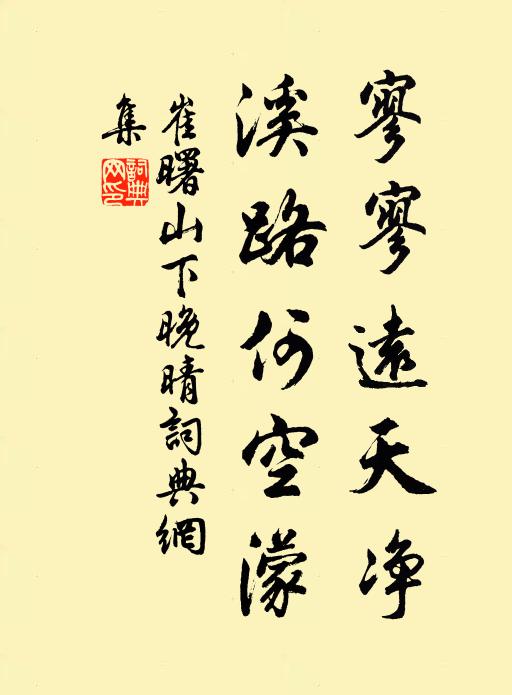 寥寥遠天净
溪路何空濛
崔曙山下晚晴詞典網
集
詞典
网印